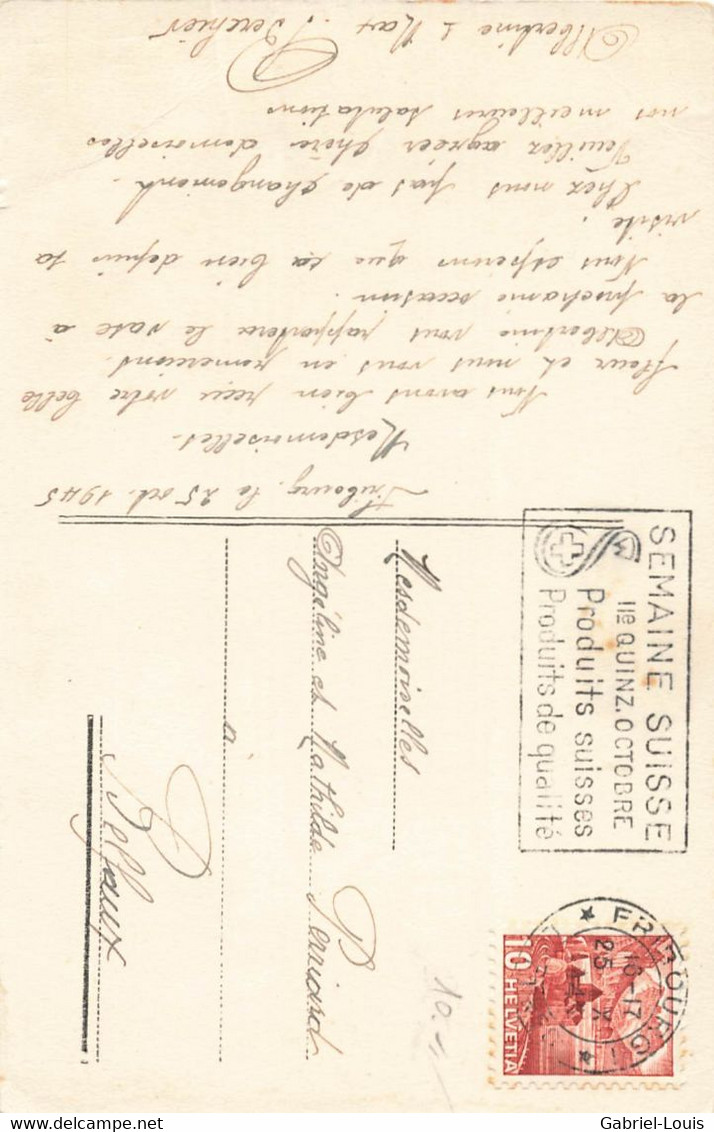 Fribourg, le 25 oct. 1945
Mesdemoiselles.
Nous avons bien reçu votre belle
fleur et nous vous en remercions.
Albertine vous rapportera le vase à
la prochaine occasion.
Nous espérons que ca bien depuis ta
visite.
Chez nous pas de changement.
Veuillez agréer chère demoiselles
nos meilleures salutations
Albertine & Max Berchier
Mesdemoiselles
Angéline et Mathilde
à
Belfaux
SEMAINE SUISSE
IIe QUINZ. OCTOBRE
Produits suisses
Produits de qualité
FRIBOURG 1
25 X
16-17
10 HELVETIA
10.-
Gabriel-Louis